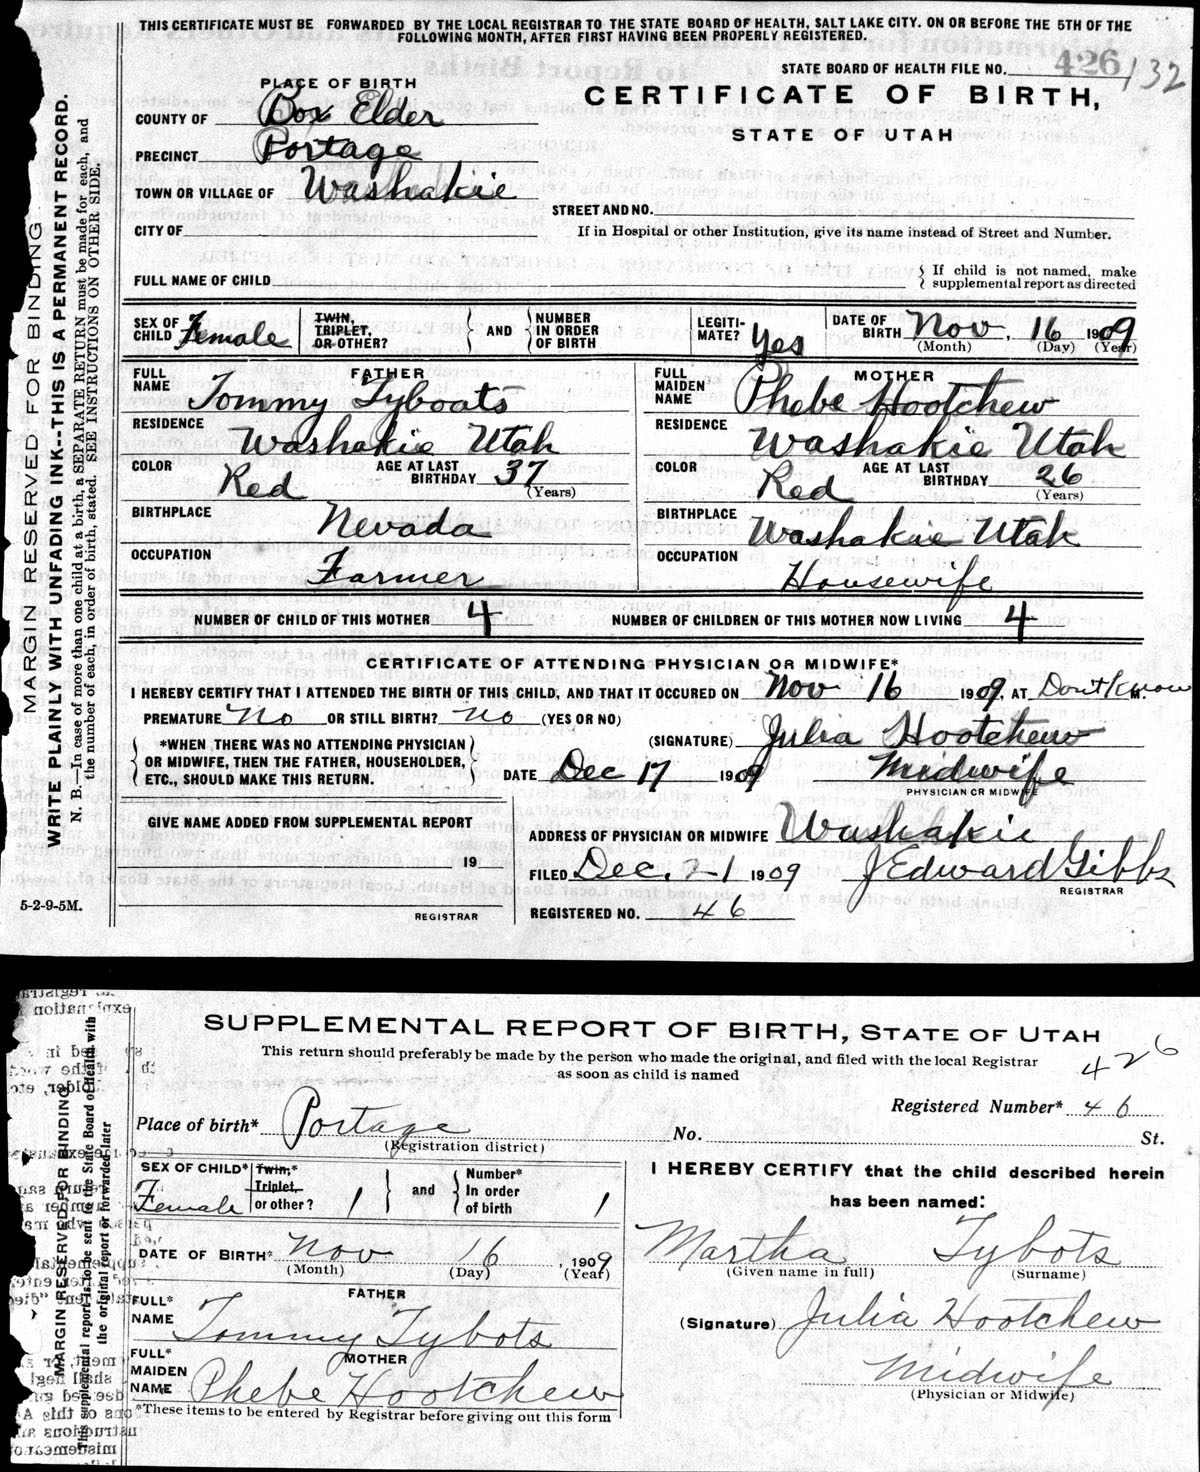 THIS CERTIFICATE MUST BE FORWARDED BY THE LOCAL REGISTRAR TO THE STATE BOARD OF HEALTH, SALT LAKE CITY. ON OR BEFORE THE 5TH OF THE
FOLLOWING MONTH, AFTER FIRST HAVING BEEN PROPERLY REGISTERED.
STATE BOARD OF HEALTH FILE NO. 426 132
PLACE OF BIRTH
CERTIFICATE OF BIRTH,
COUNTY OF Box Elder
STATE OF UTAH
PRECINCT Portage
TOWN OR VILLAGE OF Washakie
STREET AND NO.
CITY OF
If in Hospital or other Institution, give its name instead of Street and Number.
FULL NAME OF CHILD
If child is not named, make
supplemental report as directed
SEX OF CHILD Female
TWIN, TRIPLET, OR OTHER?
AND
NUMBER IN ORDER OF BIRTH
LEGITIMATE? Yes
DATE OF BIRTH Nov, 16 1909
(Month) (Day) (Year)
FATHER
FULL NAME Tommy Tyboats
RESIDENCE Washakie Utah
COLOR Red AGE AT LAST BIRTHDAY 37
(Years)
BIRTHPLACE Nevada
OCCUPATION Farmer
MOTHER
FULL MAIDEN NAME Phebe Hootchew
RESIDENCE Washakie Utah
COLOR Red AGE AT LAST BIRTHDAY 26
(Years)
BIRTHPLACE Washakie Utah
OCCUPATION Housewife
NUMBER OF CHILD OF THIS MOTHER 4 NUMBER OF CHILDREN OF THIS MOTHER NOW LIVING 4
CERTIFICATE OF ATTENDING PHYSICIAN OR MIDWIFE*
I HEREBY CERTIFY THAT I ATTENDED THE BIRTH OF THIS CHILD, AND THAT IT OCCURED ON Nov 16 1909, AT Don't Know M.
PREMATURE No OR STILL BIRTH? No (YES OR NO)
(SIGNATURE) Julia Hootchew
*WHEN THERE WAS NO ATTENDING PHYSICIAN
OR MIDWIFE, THEN THE FATHER, HOUSEHOLDER,
ETC., SHOULD MAKE THIS RETURN.
DATE Dec 17 1909 Midwife
PHYSICIAN OR MIDWIFE
GIVE NAME ADDED FROM SUPPLEMENTAL REPORT
19
REGISTRAR
ADDRESS OF PHYSICIAN OR MIDWIFE Washakie
FILED Dec. 21 1909 J Edward Gibbs
REGISTRAR
REGISTERED NO. 46
5-2-9-5M.
MARGIN RESERVED FOR BINDING
WRITE PLAINLY WITH UNFADING INK--THIS IS A PERMANENT RECORD.
N. B.—In case of more than one child at a birth, a SEPARATE RETURN must be made for each, and
the number of each, in order of birth, stated. SEE INSTRUCTIONS ON OTHER SIDE.
SUPPLEMENTAL REPORT OF BIRTH, STATE OF UTAH
This return should preferably be made by the person who made the original, and filed with the local Registrar
as soon as child is named
426
Registered Number* 46
Place of birth* Portage No. St.
(Registration district)
SEX OF CHILD* Female
Twin,* Triplet, or other? 1
and
Number* In order of birth 1
DATE OF BIRTH* Nov 16, 1909
(Month) (Day) (Year)
FATHER
FULL* NAME Tommy Tybots
MOTHER
FULL* MAIDEN NAME Phebe Hootchew
*These items to be entered by Registrar before giving out this form
I HEREBY CERTIFY that the child described herein
has been named:
Martha Tybots
(Given name in full) (Surname)
(Signature) Julia Hootchew
Midwife
(Physician or Midwife)
MARGIN RESERVED FOR BINDING
This supplemental report is to be sent to the State Board of Health with
the original report or forwarded later